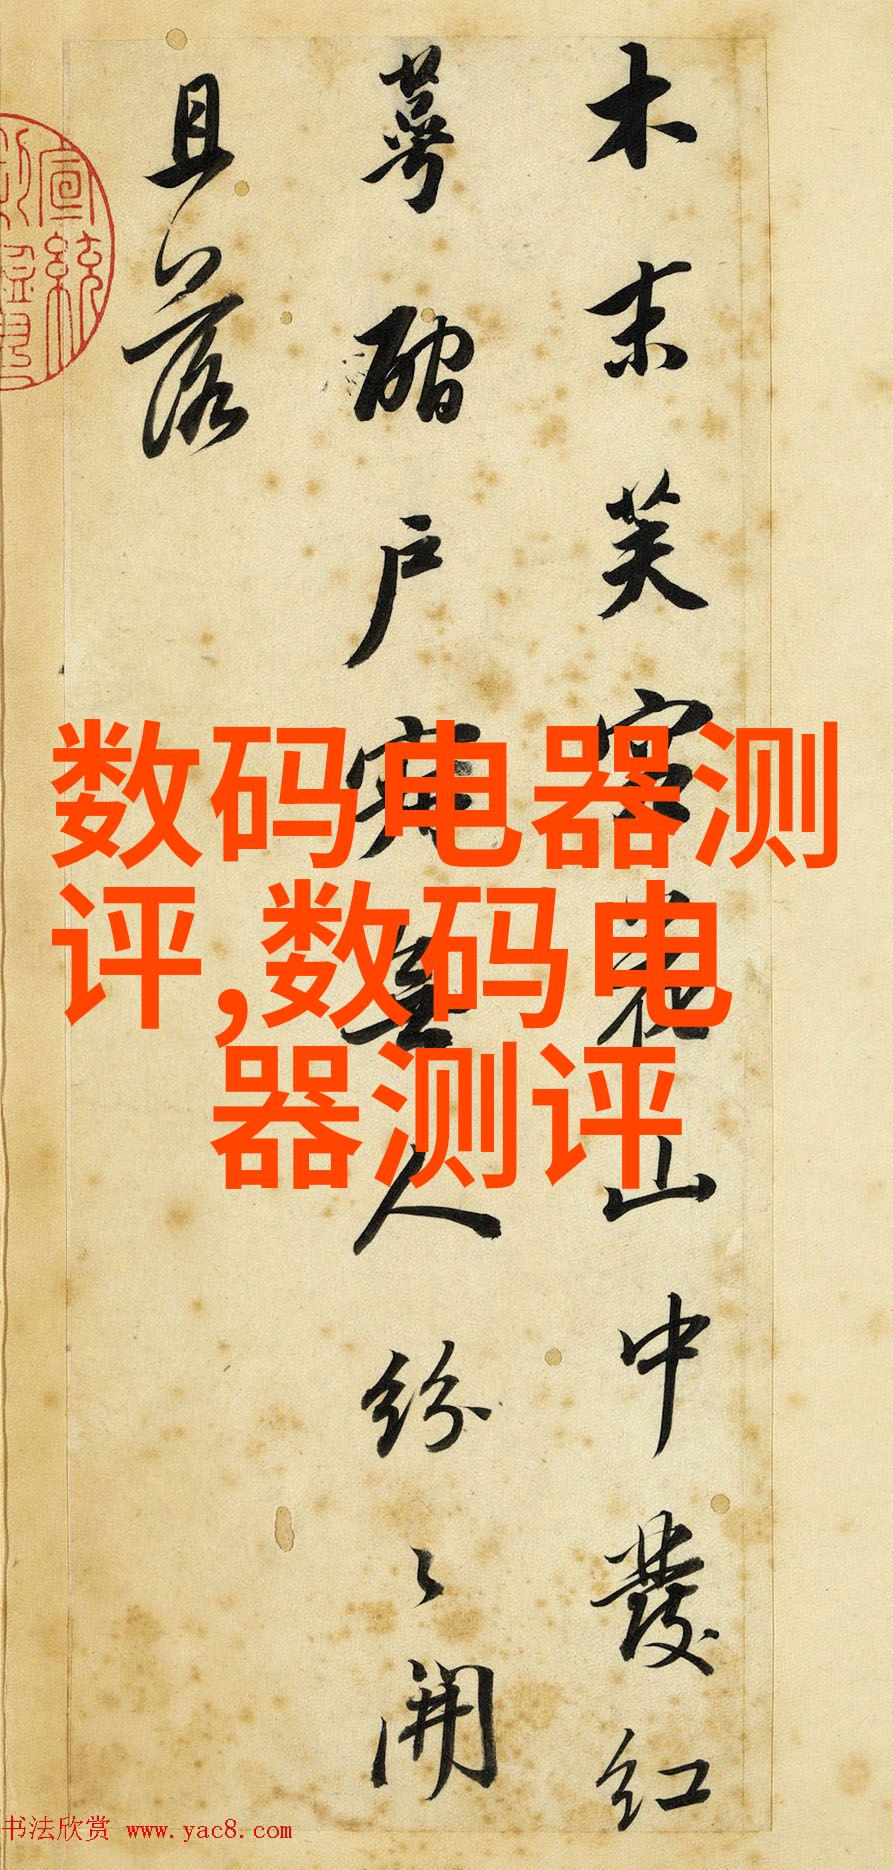 木末芙容花山中發紅
萼磵戶寂無人紛〻開
且落
宣統
数码电器测
评,数码电
器测评
书法欣赏 www.yac8.com